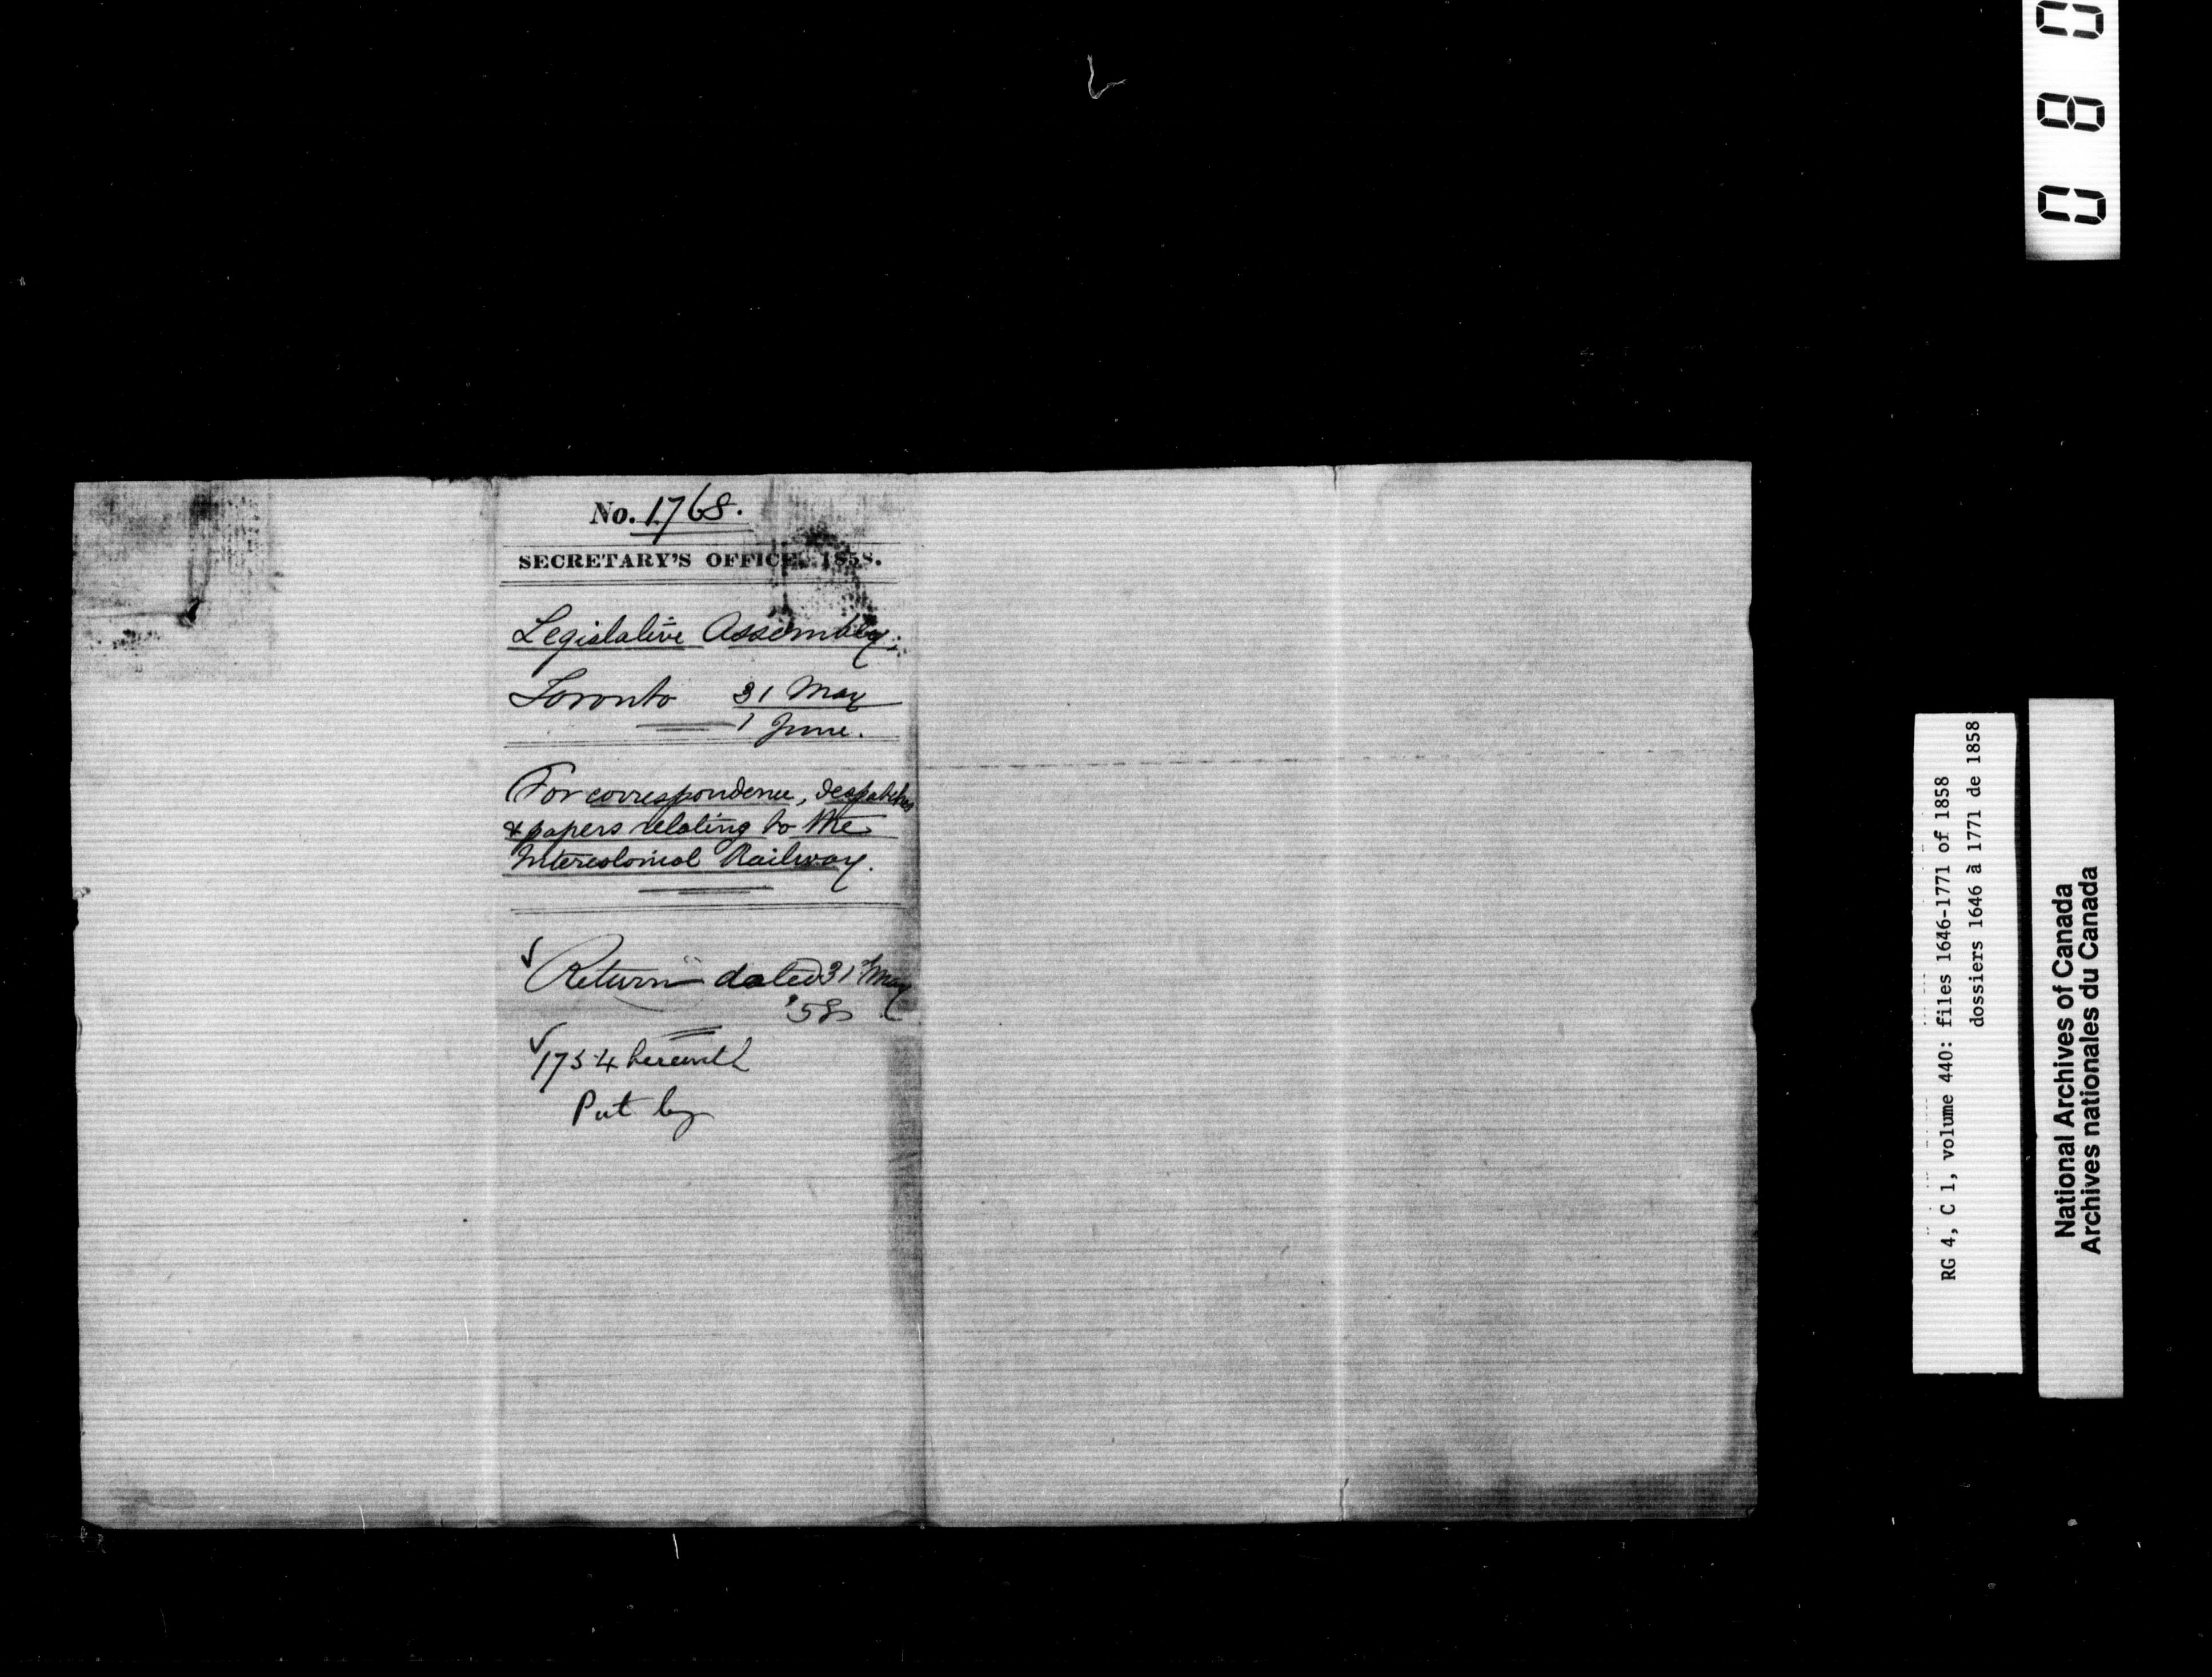 No. 1768.
SECRETARY'S OFFICE, 1858.
Legislative Assembly;
Toronto 31 May
1 June.
For correspondence, despatches
& papers relating to the
Intercolonial Railway.
✓ Return dated 31st May
'58
✓ 1754 herewith
Put by
RG 4, C 1, volume 440: files 1646-1771 of 1858
dossiers 1646 à 1771 de 1858
National Archives of Canada
Archives nationales du Canada
0 8 0